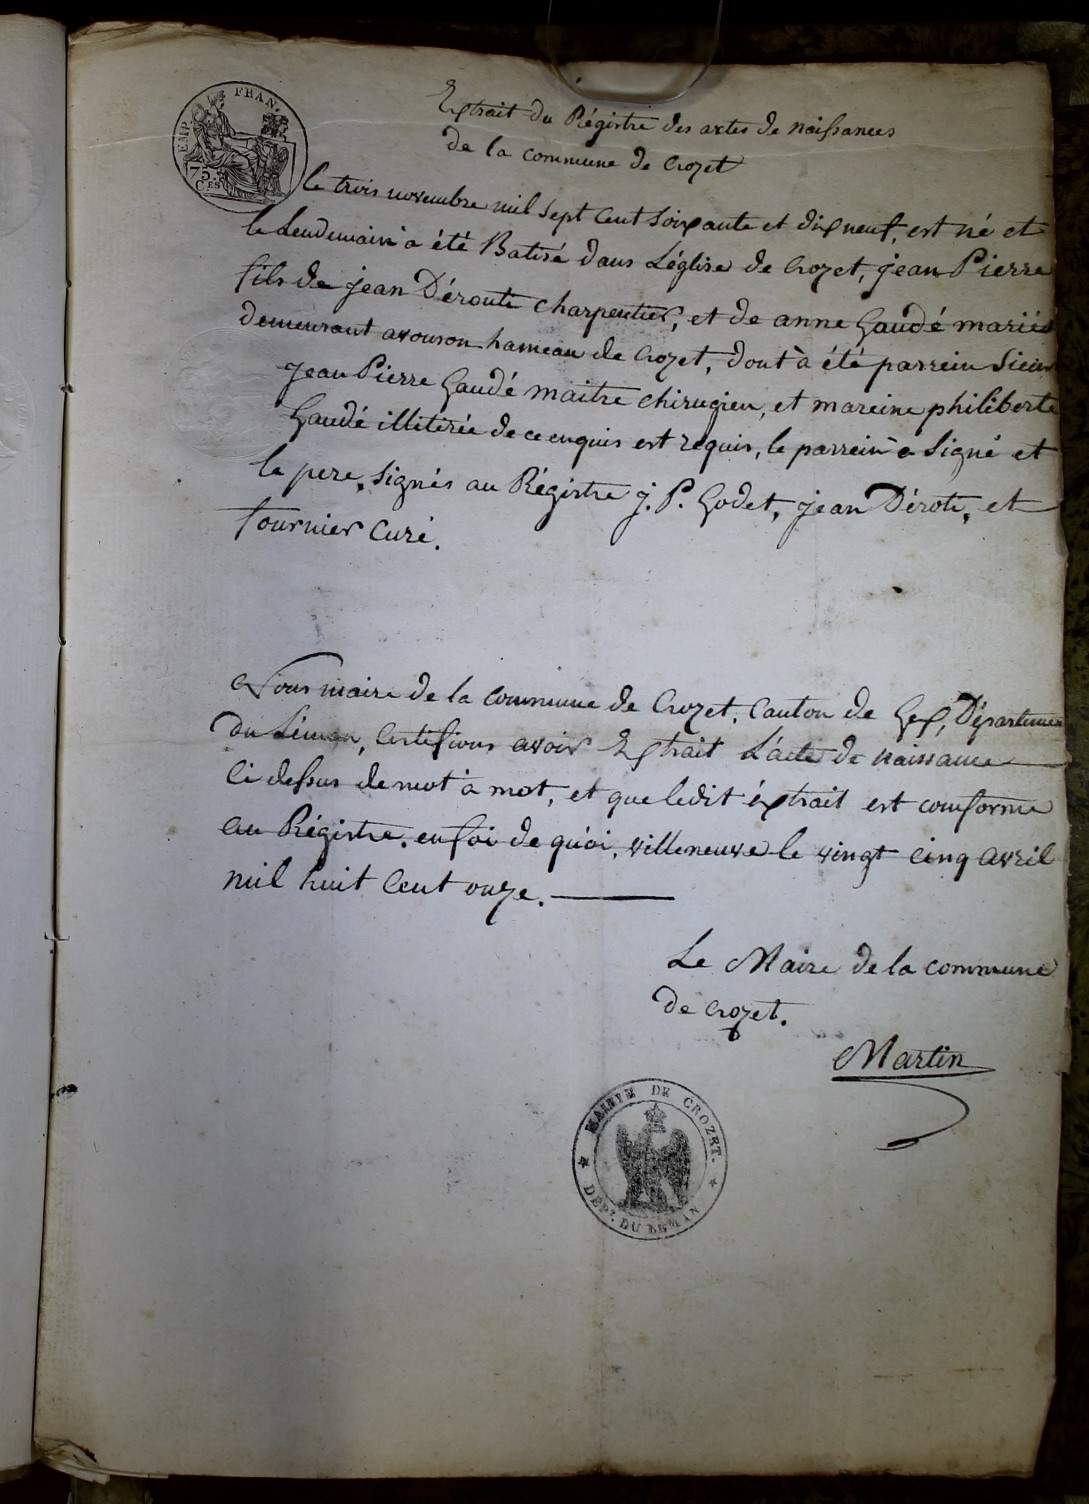 EMP. FRAN.
75. CES
Extrait du Régistre des actes de naissances
de la commune de Crozet
le trois novembre mil sept cent soixante et dix neuf, est né et
le lendemain à été Batisé dans L'église de Crozet, jean Pierre
fils de jean Déroute charpentier, et de anne Gaudé mariés
demeurant avouson hameau de Crozet, dont à été parrein Sieur
jean Pierre Gaudé maitre chirugien, et mareine philiberte
Gaudé illitérée de ce enquis est requis, le parrein à Signé et
le pere, Signés au Régistre j. P. Godet, jean Déroti, et
fournier Curé.
Nous maire de la Commune de Crozet, Canton de Gex, Département
du Léman, Certifions avoir Extrait L'acte de naissance
Ci dessus de mot à mot, et que ledit éxtrait est conforme
au Régistre. en foi de quoi, villeneuve le vingt cinq avril
mil huit Cent onze.
Le Maire de la commune
de Crozet.
Martin
MAIRIE DE CROZET.
DÉPT. DU LEMAN